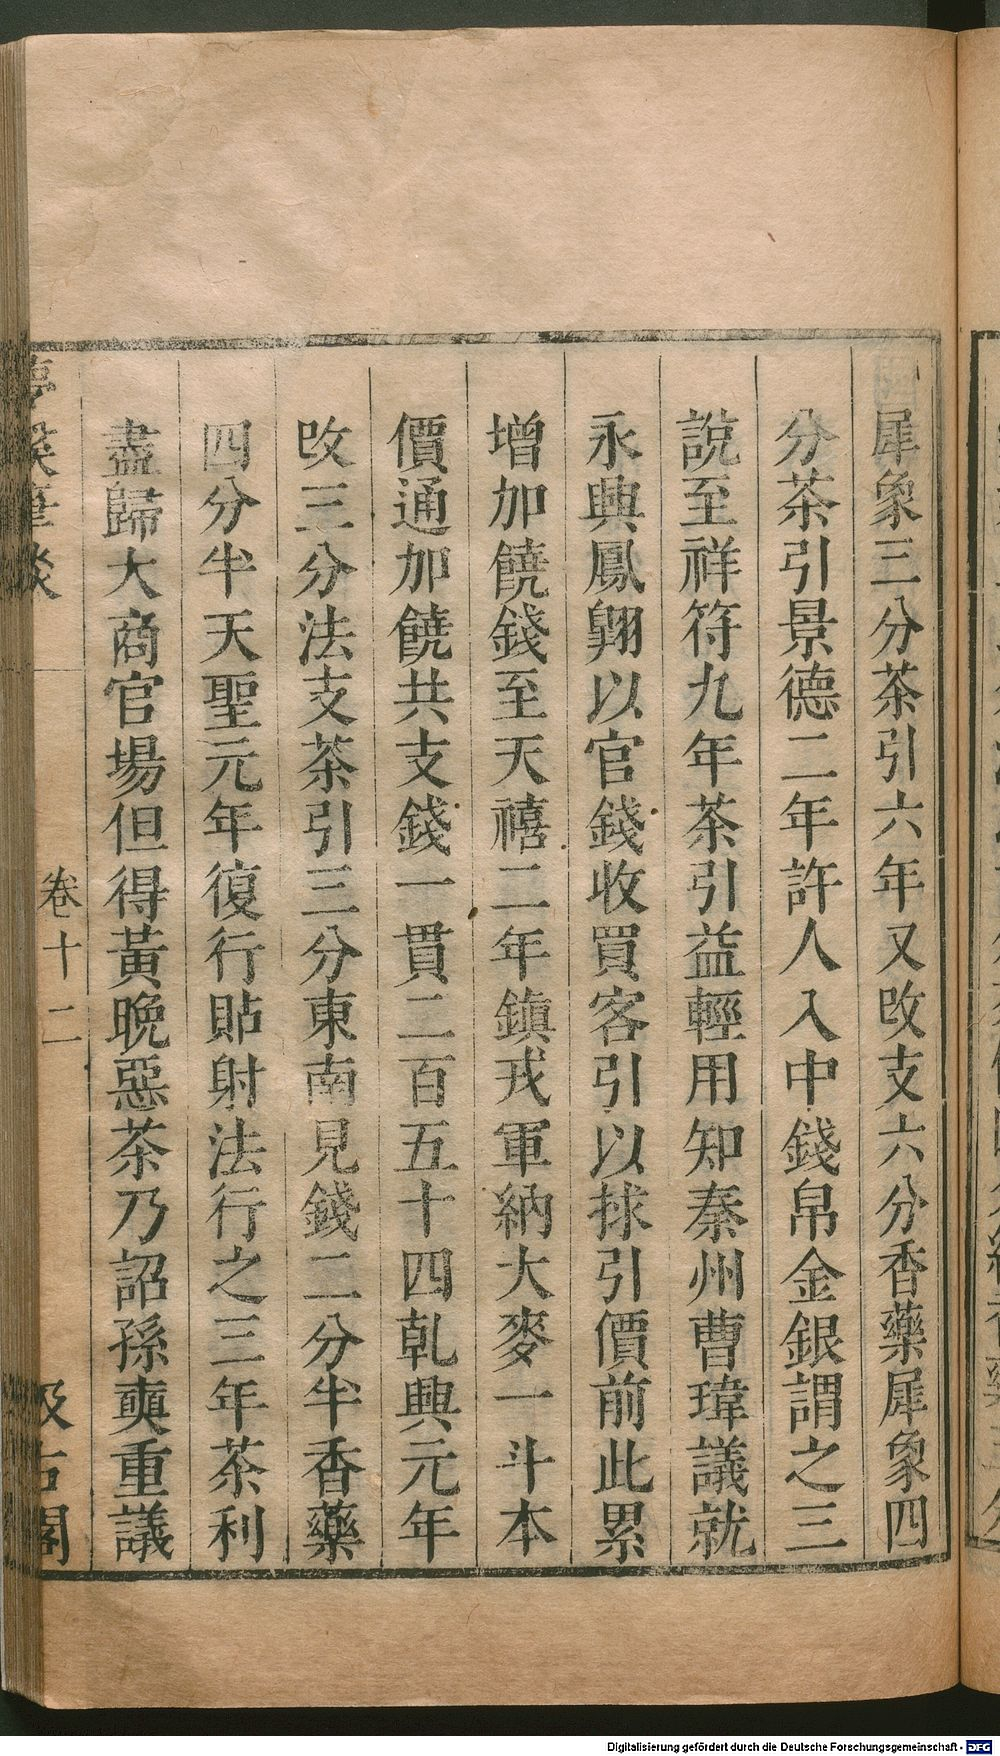 犀象三分茶引六年又改支六分香藥犀象四
分茶引景德二年許人入中錢帛金銀謂之三
說至祥符九年茶引益輕用知秦州曹瑋議就
永興鳳翔以官錢收買客引以捄引價前此累
增加饒錢至天禧二年鎮戎軍納大麥一斗本
價通加饒共支錢一貫二百五十四乾興元年
改三分法支茶引三分東南見錢二分半香藥
四分半天聖元年復行貼射法行之三年茶利
盡歸大商官場但得黃晚惡茶乃詔孫奭重議
夢溪筆談 卷十二 汲古閣
Digitalisierung gefördert durch die Deutsche Forschungsgemeinschaft - DFG